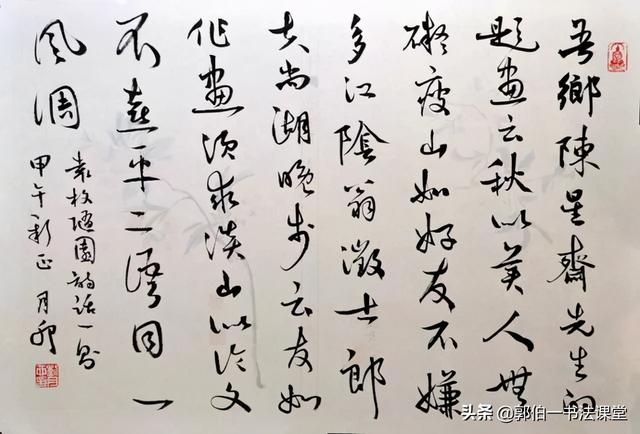 吾鄉陳星齋先生
題畫云秋以美人無
礙瘦山如好友不嫌
多江陰翁澂士郎
夫尚湖晚步云友如
作畫須求淡山以論文
不喜平二語同一
風調
袁枚隨園詩話一則
甲午新正月
头条 @郭伯一书法课堂